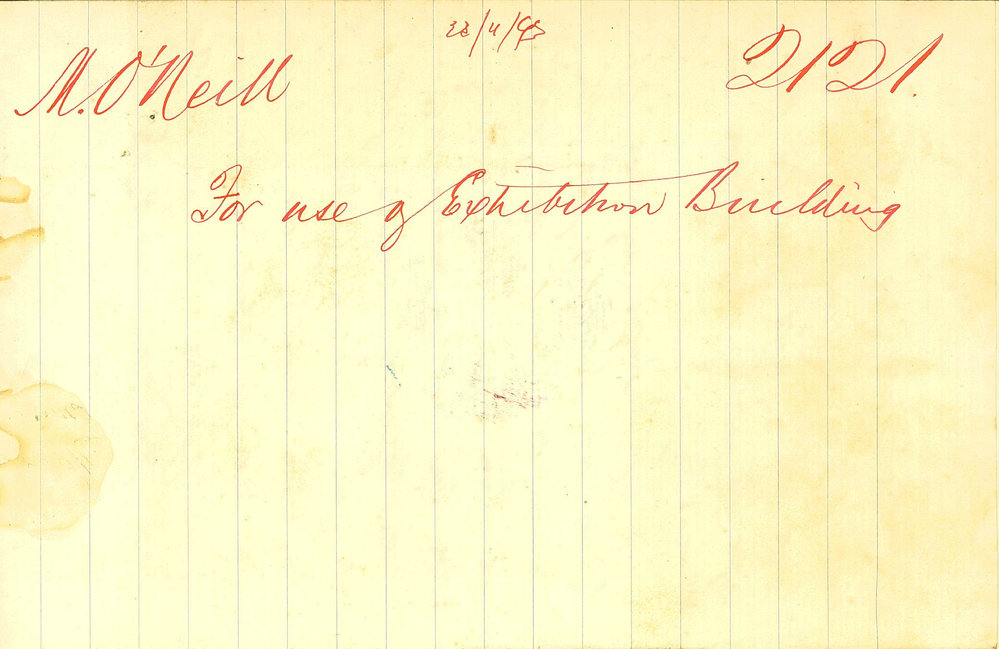 M. O'Neill 2121.
For use of Exhibition Building